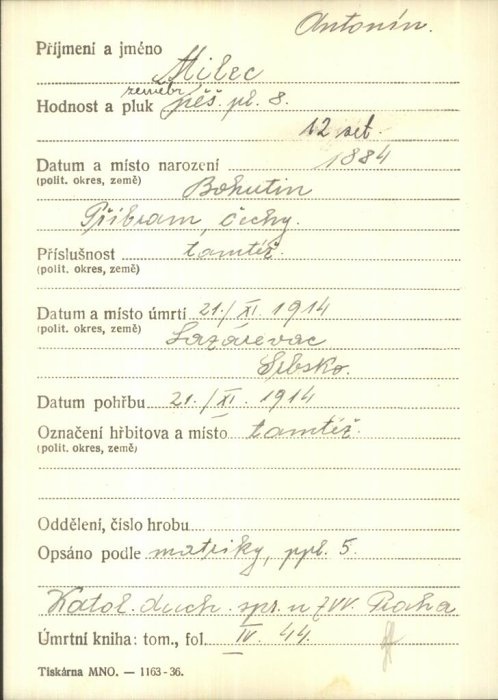 Antonín.
Příjmení a jméno
Milec
zeměbr.
Hodnost a pluk pěš. pl. 8.
12 set.
Datum a místo narození 1884
(polit. okres, země)
Bohutin
Příbram, Čechy.
Příslušnost tamtéž.
(polit. okres, země)
Datum a místo úmrtí 21./XI. 1914
(polit. okres, země)
Lazárevac
Srbsko.
Datum pohřbu 21./XI. 1914
Označení hřbitova a místo tamtéž.
(polit. okres, země)
Oddělení, číslo hrobu
Opsáno podle matriky, ppl. 5.
Katol. duch. spr. u ZVV. Praha
Úmrtní kniha: tom., fol. IV. 44.
Tiskárna MNO. — 1163-36.